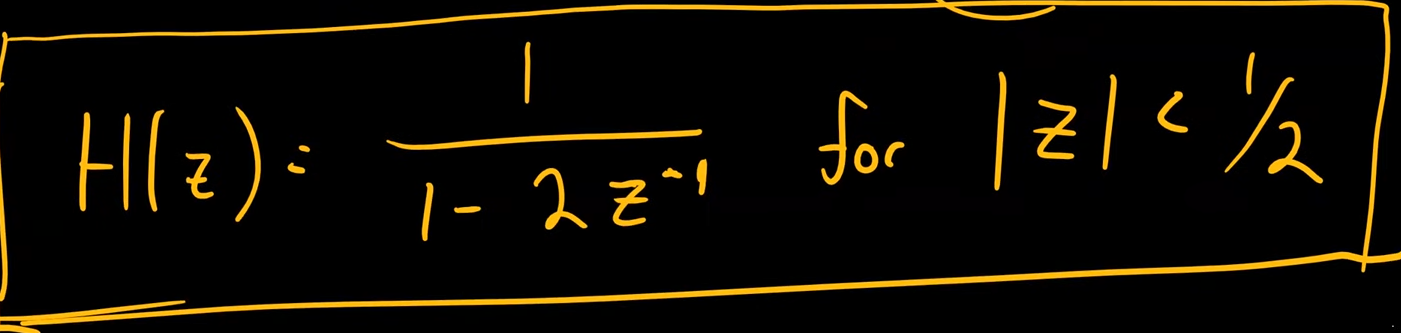 H(z) = 1 / (1 - 2z⁻¹) for |z| < 1/2